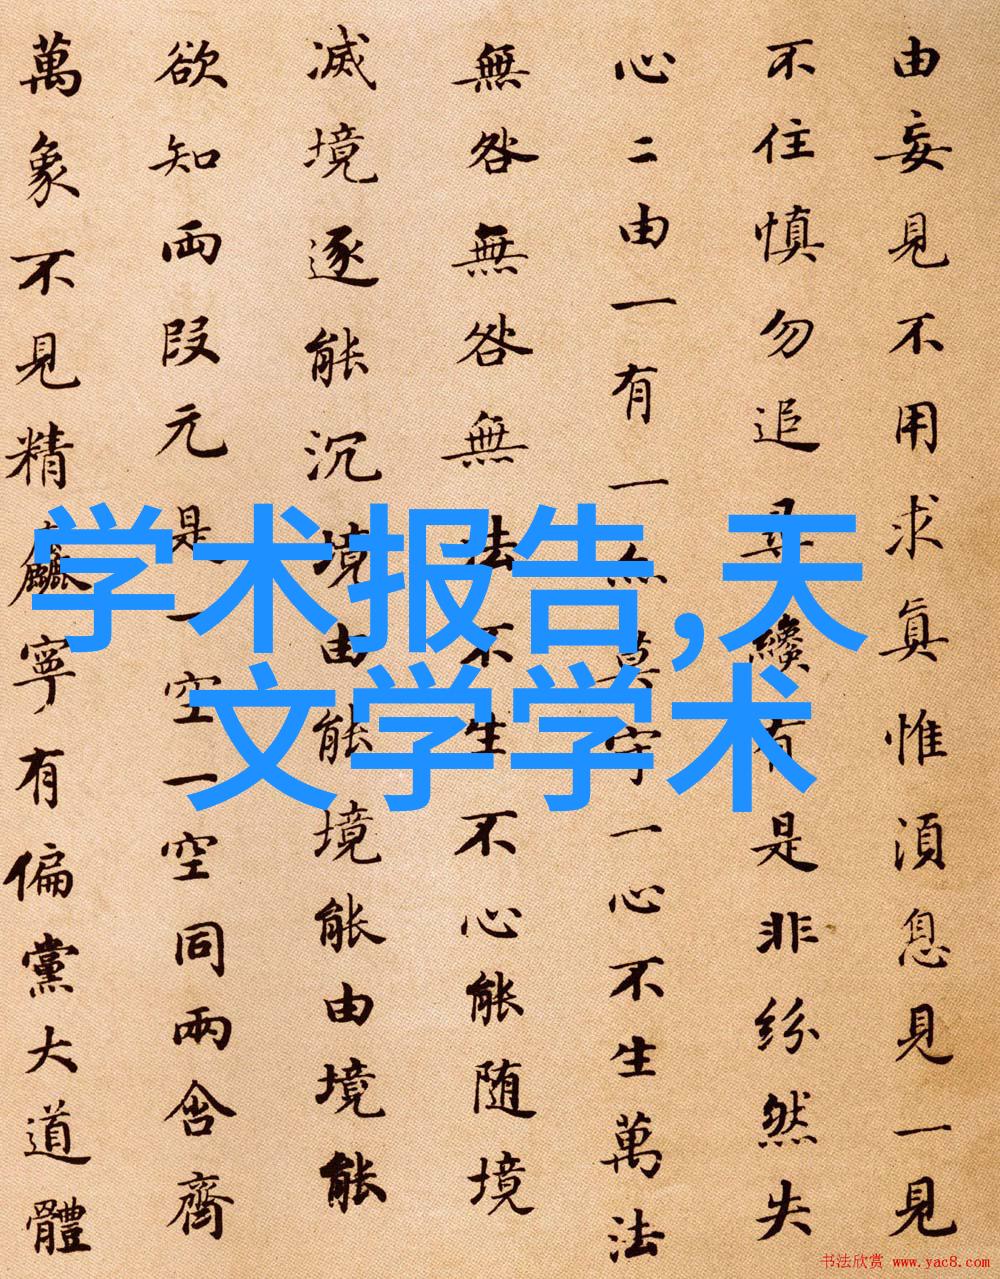 由妄見不用求眞惟湏息見一見
不住慎勿追纔有是非紛然失
心二由一有一莫守一心不生萬法
無咎無咎無法不生不心能随境
滅境逐能沉境由能境能由境能
欲知兩段元是一空一空同兩含齊
萬象不見精麤寧有偏黨大道體
学术报告,天
文学学术
书法欣赏 www.yac8.com